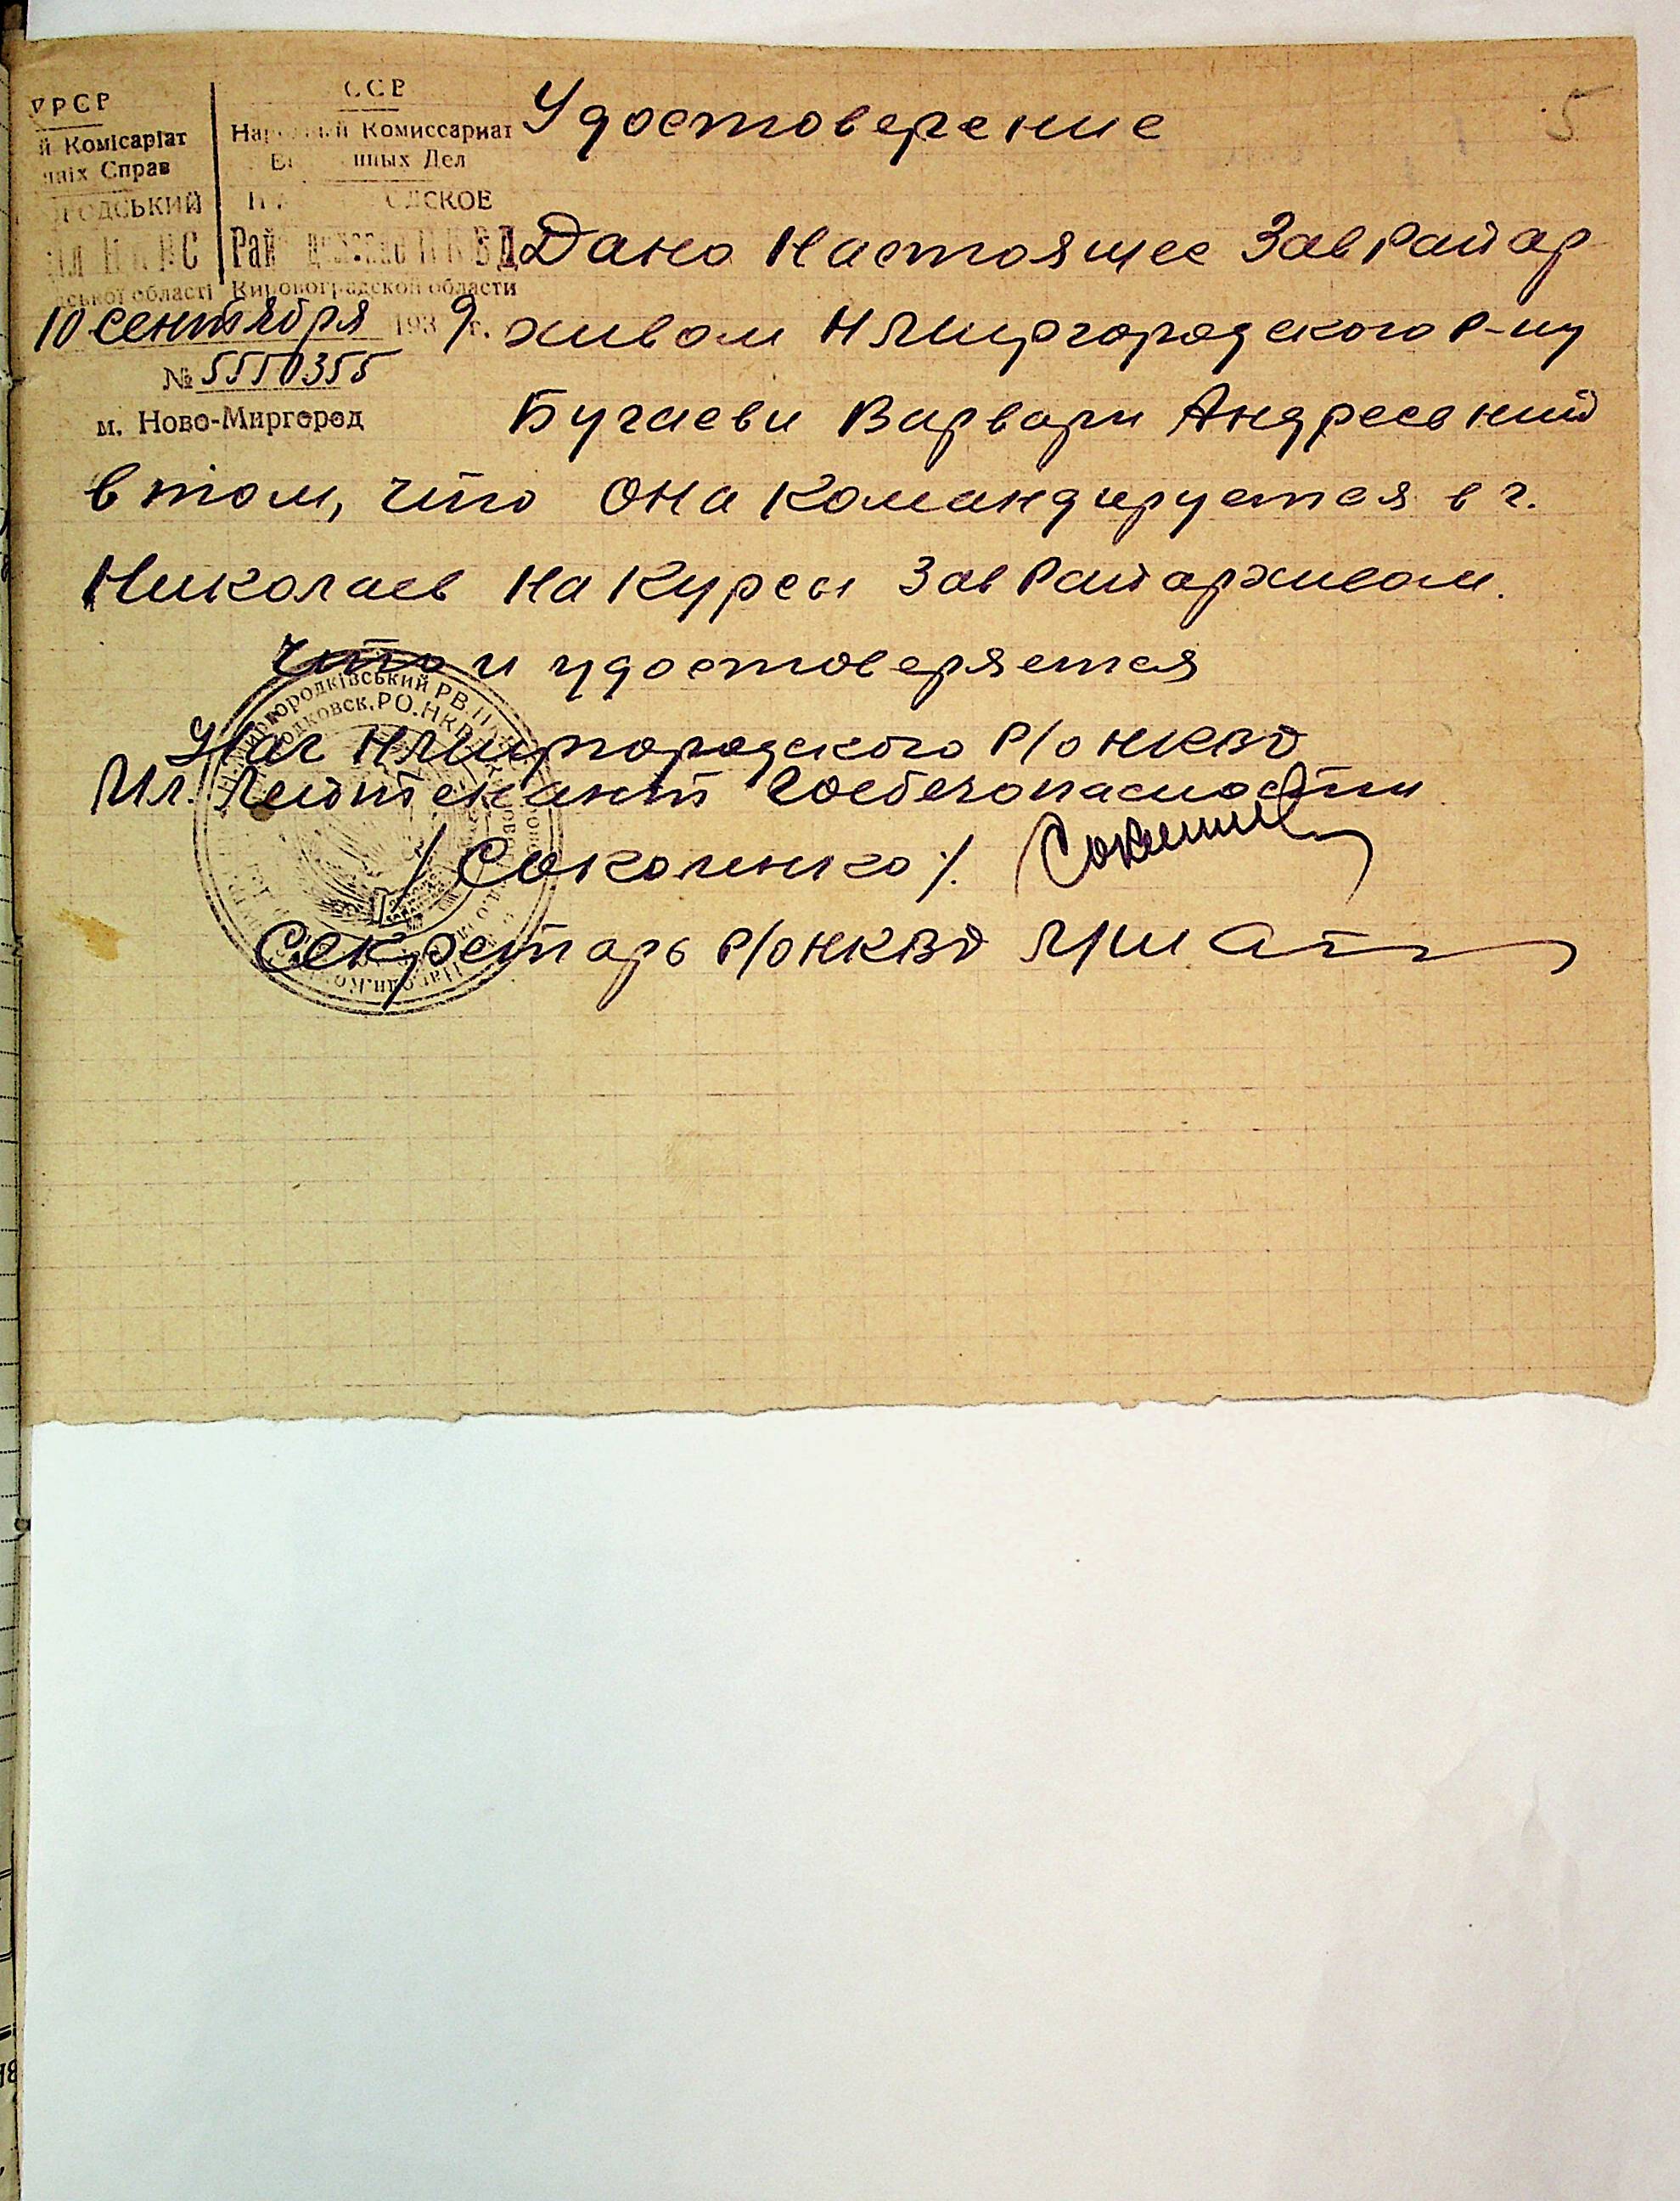 УРСР
й Комісаріат
Справ
ОДСЬКИЙ
ської області
ССР
Комиссариат
Дел
Кировоградской области
10 сентября 1939 г.
№ 5550355
м. Ново-Миргород
5
Удостоверение
Дано Настоящее ЗавРайар
хивом НМиргородского Р-ну
Бугаеви Варвари Андреевний
в том, что она командируется в г.
Николаев на Курсы ЗавРайархивом.
Что и удостоверяется
Нач НМиргородского Р/О НКВД
Мл. Лейтенант Госбезопасности
/Соколенко/.
Секретарь Р/О НКВД